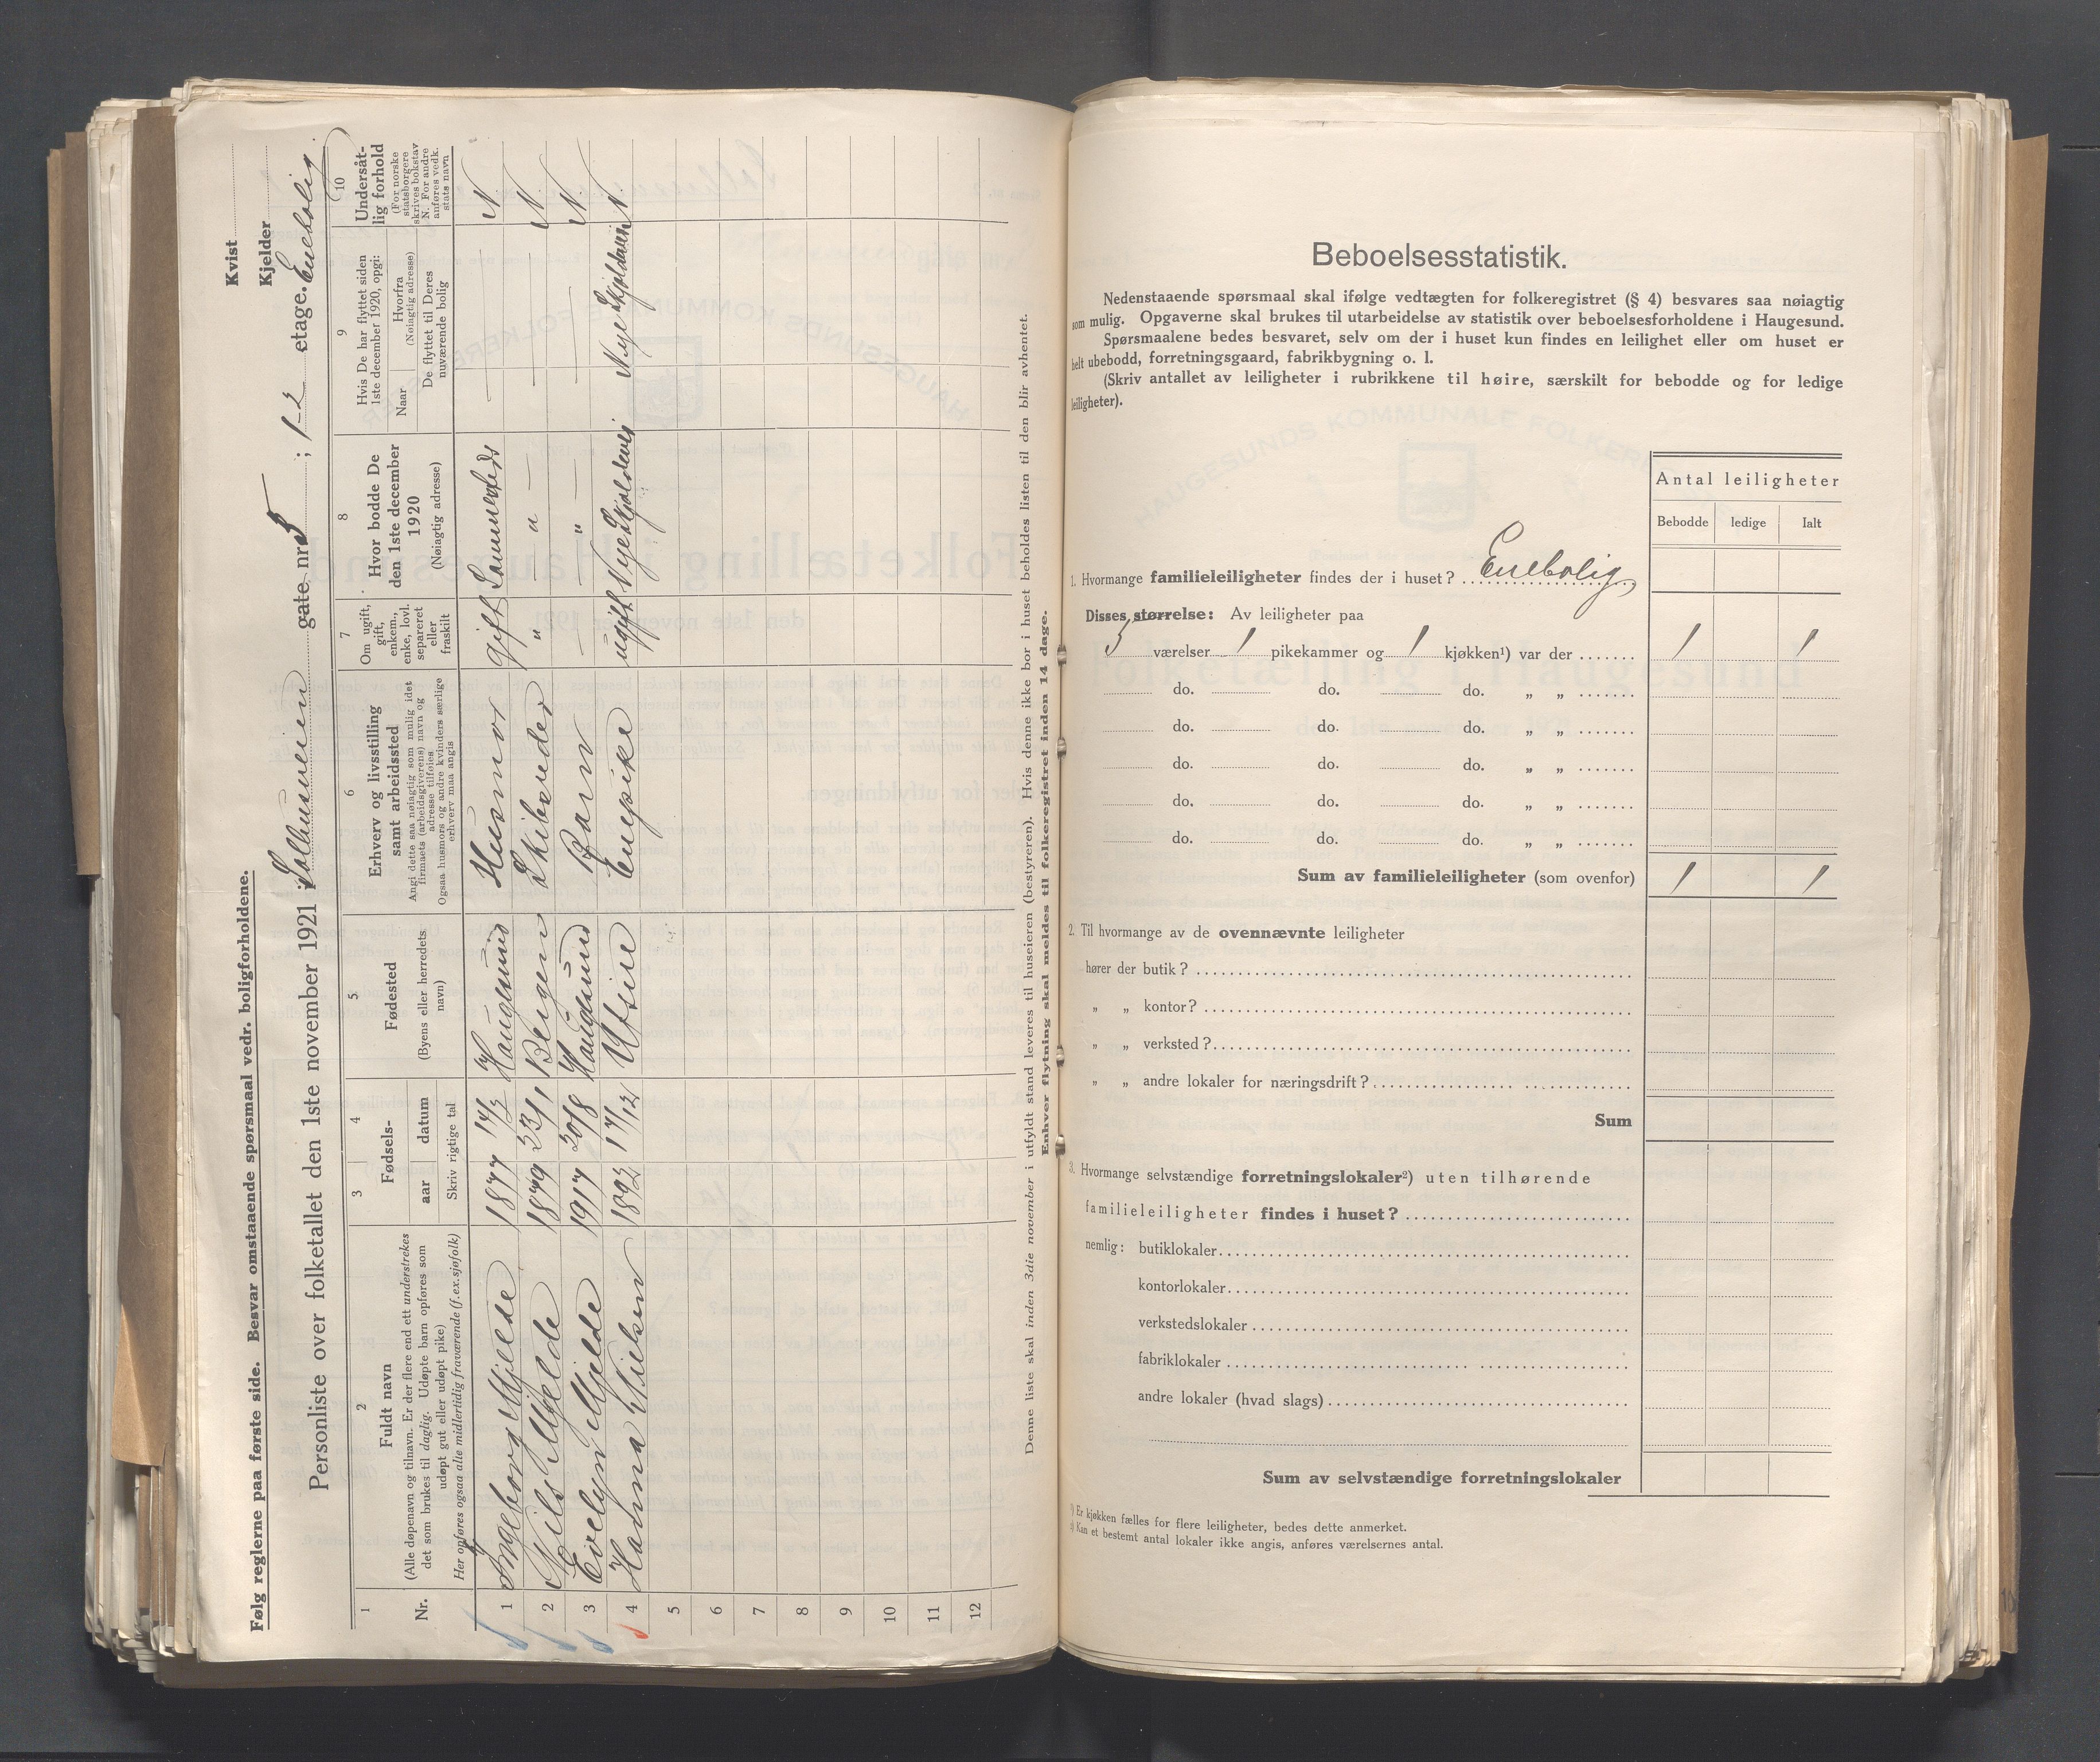 Følg reglerne paa første side. Besvar omstaaende spørsmaal vedr. boligforholdene.
Kvist
Kjelder
Personliste over folketallet den 1ste november 1921 i Solhaugveien gate nr. 5; 1-2 etage. Enebolig.
1 2 3 4 5 6 7 8 9 10
Nr.
Fuldt navn
(Alle døpenavn og tilnavn. Er der flere end ett understrekes
det som brukes til daglig. Udøpte barn opføres som
udøpt gut eller udøpt pike)
Her opføres ogsaa alle midlertidig fraværende (f.ex.sjøfolk)
Fødsels-
aar datum
Skriv rigtige tal
Fødested
(Byens eller herredets
navn)
Erhverv og livsstilling
samt arbeidssted
Angi dette saa nøiagtig som mulig idet
firmaets (arbeidsgiverens) navn og
adresse tilføies
Ogsaa husmors og andre kvinders særlige
erhverv maa angis
Om ugift,
gift,
enkem.,
enke, lovl.
separeret
eller
fraskilt
Hvor bodde De
den 1ste december
1920
(Nøiagtig adresse)
Hvis De har flyttet siden
1ste december 1920, opgi:
Naar
Hvorfra
(Nøiagtig adresse)
De flyttet til Deres
nuværende bolig
Undersåt-
lig forhold
(For norske
statsborgere
skrives bokstav
N. For andre
anføres vedk.
stats navn
1 Ingeborg Mjelde 1877 14/3 Haugesund Husmor gift Sammesteds — N
2 Nils Mjelde 1879 23/1 Bergen Skibsreder " — " — — N
3 Evelyn Mjelde 1917 20/8 Haugesund Barn — — " — — N
4 Hanna Nielsen 1893 17/12 Utsire Enepike ugift Nye Skjoldevei Nye Skjoldevei N
5
6
7
8
9
10
11
12
Denne liste skal inden 3die november i utfyldt stand leveres til huseieren (bestyreren). Hvis denne ikke bor i huset beholdes listen til den blir avhentet.
Enhver flytning skal meldes til folkeregistret inden 14 dage.
Beboelsesstatistik.
Nedenstaaende spørsmaal skal ifølge vedtægten for folkeregistret (§ 4) besvares saa nøiagtig
som mulig. Opgaverne skal brukes til utarbeidelse av statistik over beboelsesforholdene i Haugesund.
Spørsmaalene bedes besvaret, selv om der i huset kun findes en leilighet eller om huset er
helt ubebodd, forretningsgaard, fabrikbygning o. l.
(Skriv antallet av leiligheter i rubrikkene til høire, særskilt for bebodde og for ledige
leiligheter).
Antal leiligheter
Bebodde ledige Ialt
1. Hvormange familieleiligheter findes der i huset? Enebolig
Disses størrelse: Av leiligheter paa
5 værelser 1 pikekammer og 1 kjøkken¹) var der 1 1
do. do. do. „ „
do. do. do. „ „
do. do. do. „ „
do. do. do. „ „
do. do. do. „ „
Sum av familieleiligheter (som ovenfor) 1 1
2. Til hvormange av de ovennævnte leiligheter
hører der butik?
„ „ kontor?
„ „ verksted?
„ „ andre lokaler for næringsdrift?
Sum
3. Hvormange selvstændige forretningslokaler²) uten tilhørende
familieleiligheter findes i huset?
nemlig: butiklokaler
kontorlokaler
verkstedslokaler
fabriklokaler
andre lokaler (hvad slags)
Sum av selvstændige forretningslokaler
¹) Er kjøkken fælles for flere leiligheter, bedes dette anmerket.
²) Kan et bestemt antal lokaler ikke angis, anføres værelsernes antal.